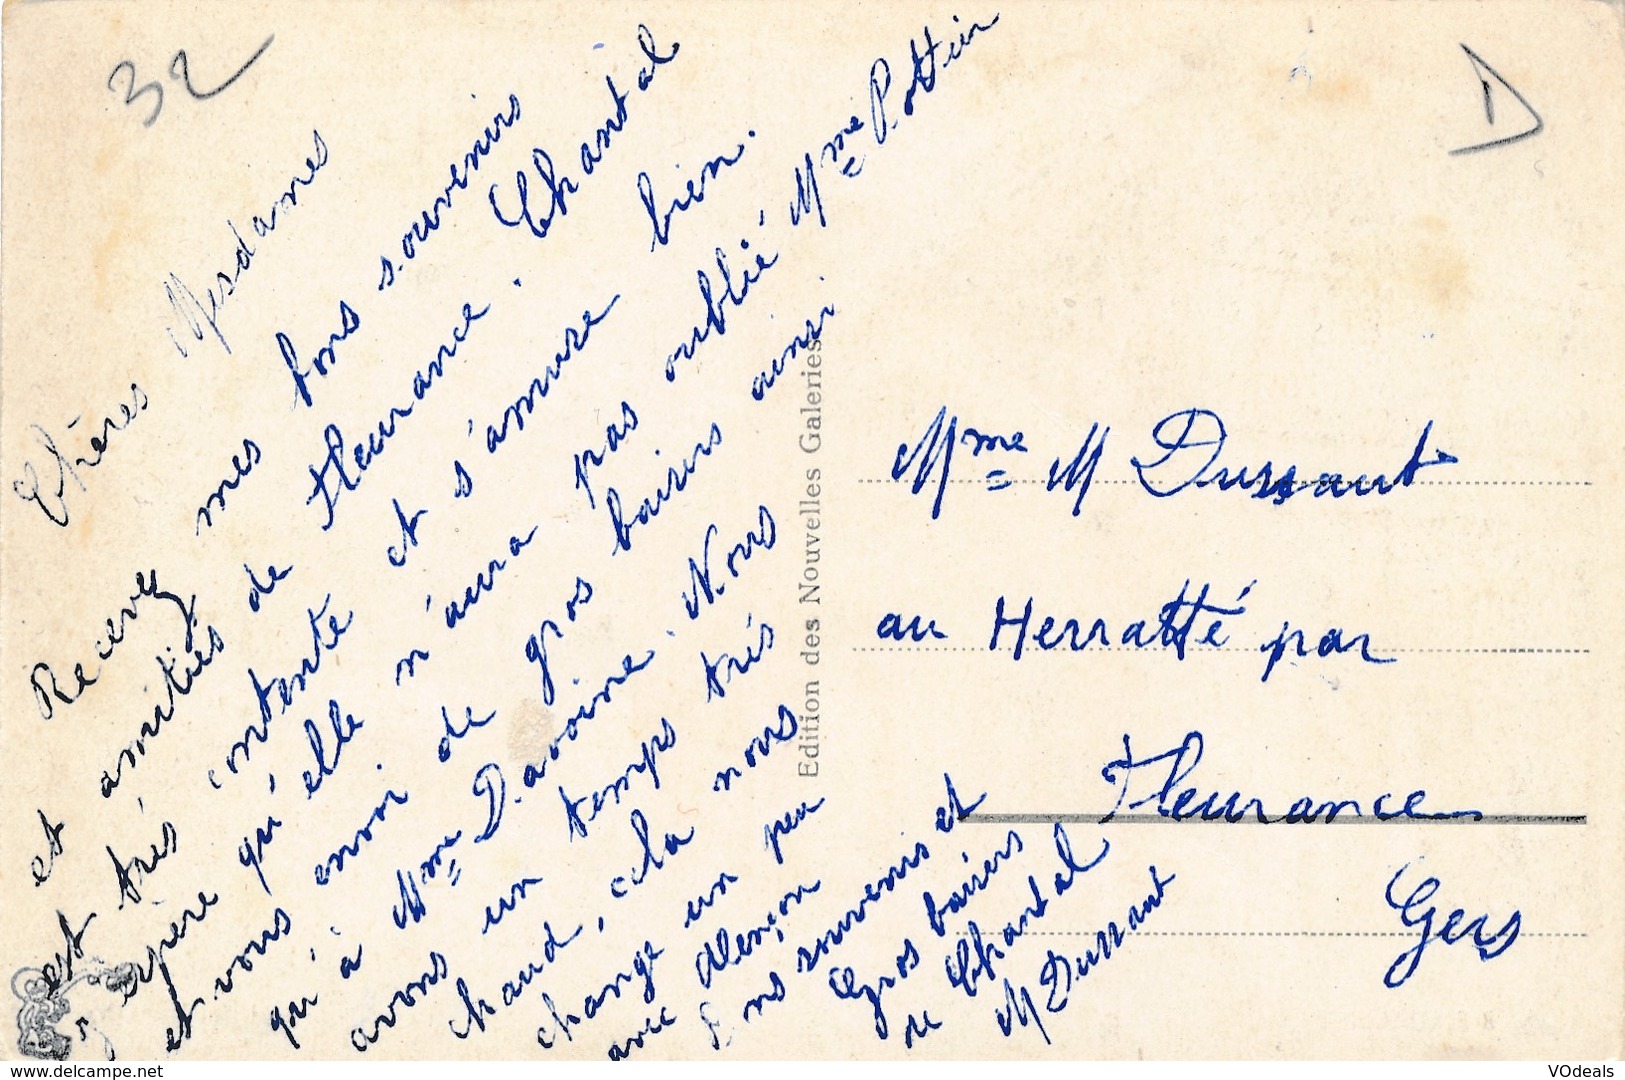 32
D
Chères Mesdames
Recevez mes bons souvenirs
et amitiés de Fleurance. Chantal
est très contente et s'amuse bien.
J'espère qu'elle n'aura pas oublié Mme Pottier
et vous envoi de gros baisers ainsi
qu'à Mme Davoine. Nous
avons un temps très
chaud, cela nous
change un peu
avec Alençon
Bons souvenirs et
Gros baisers
de Chantal
M Dussaut
Edition des Nouvelles Galeries
Mme M Dussaut
au Herratté par
Fleurance
Gers
delcampe.net
VOdeals